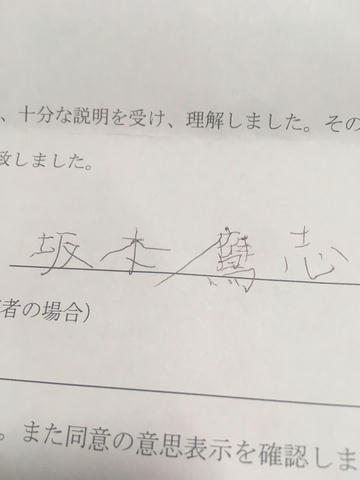 、十分な説明を受け、理解しました。その
致しました。
坂本鷹志
者の場合）
。また同意の意思表示を確認しま